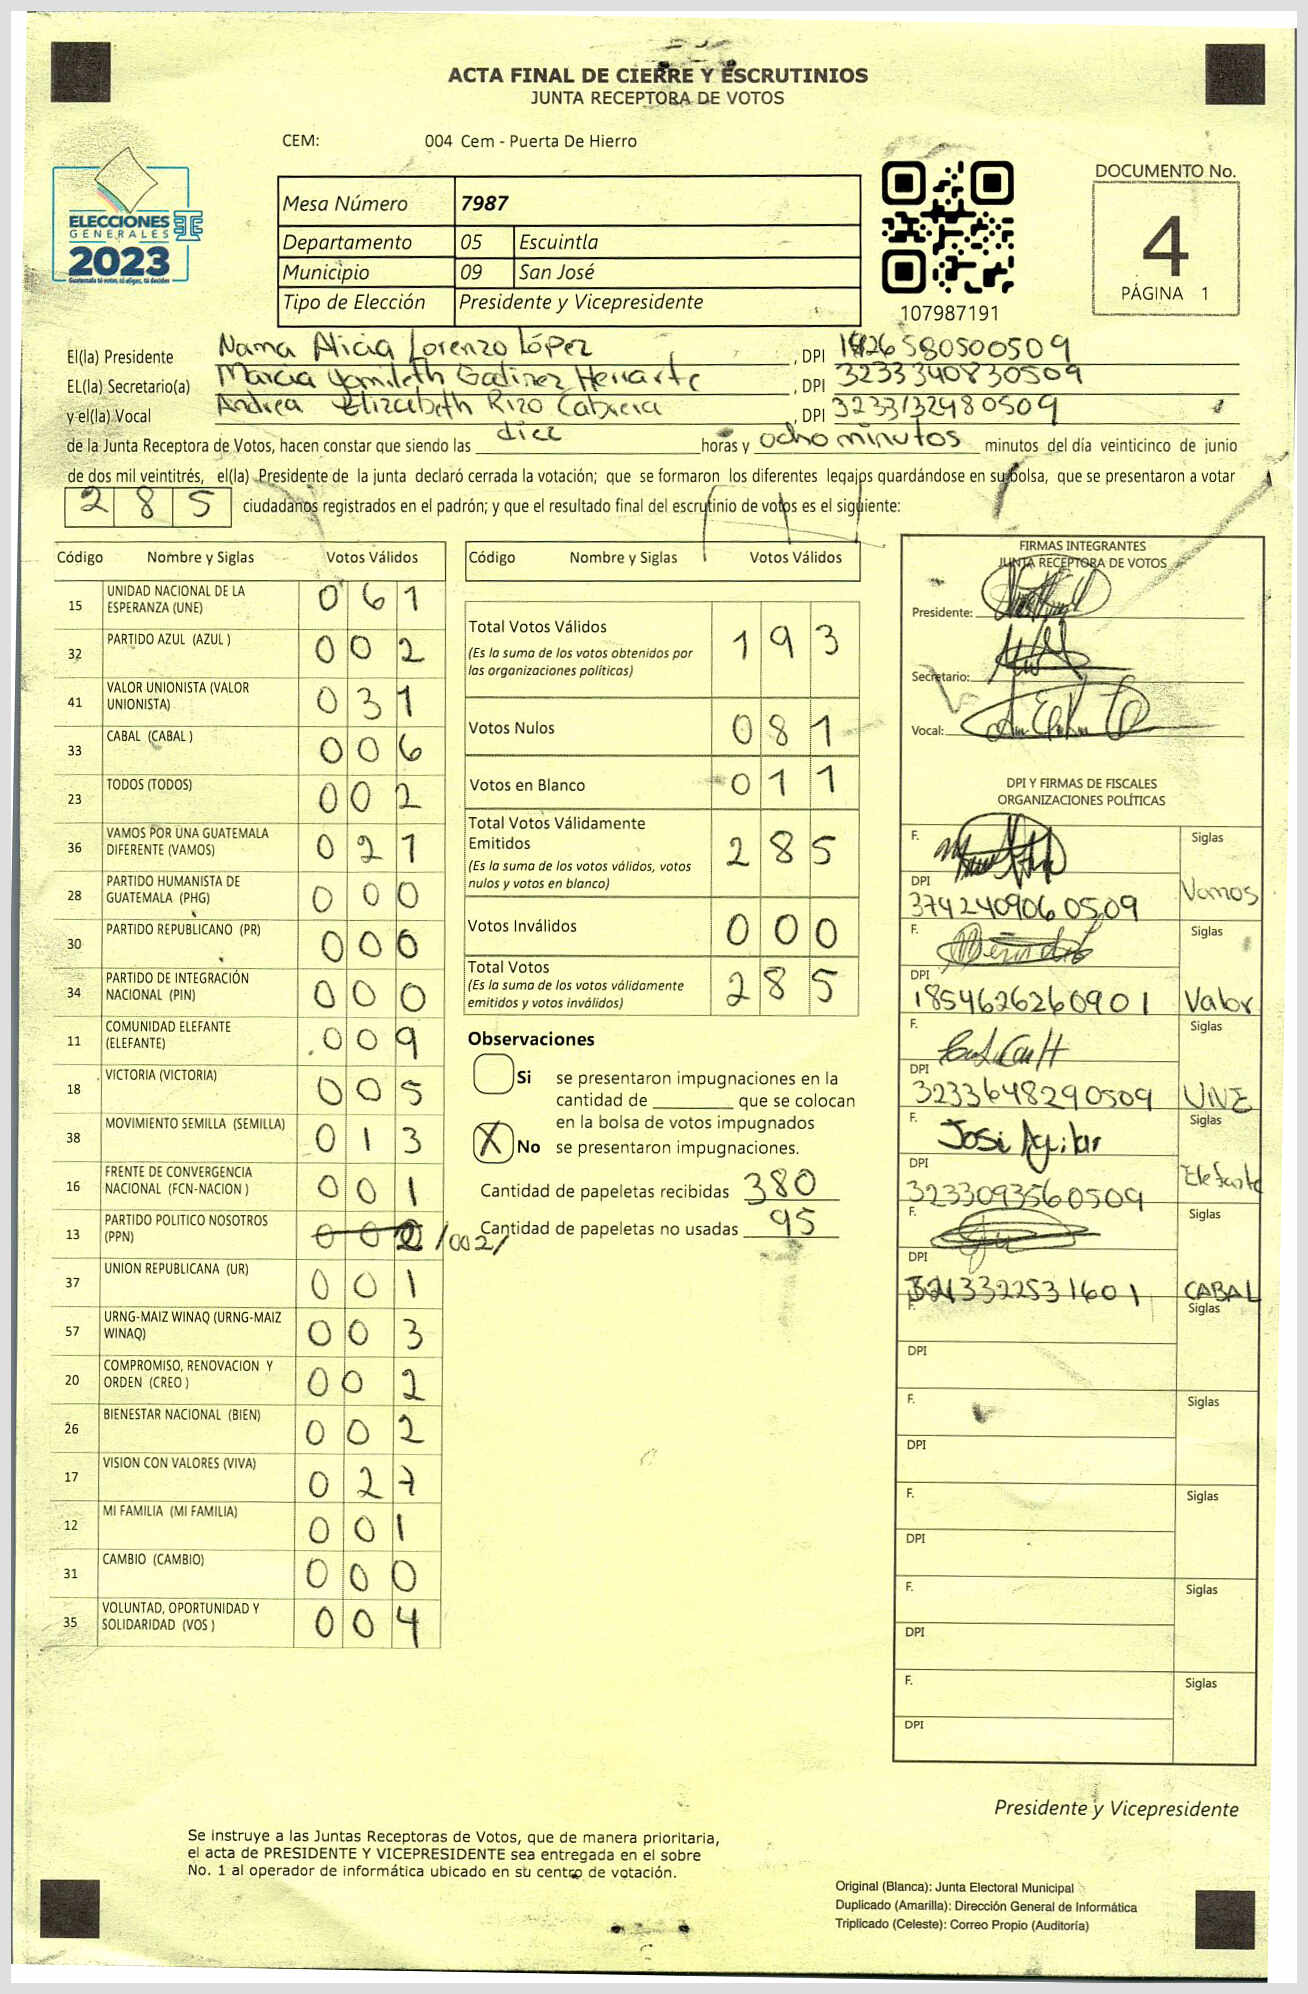 ACTA FINAL DE CIERRE Y ESCRUTINIOS
JUNTA RECEPTORA DE VOTOS
CEM: 004 Cem - Puerta De Hierro
ELECCIONES
GENERALES
2023
Guatemala tú votas, tú eliges, tú decides
Mesa Número 7987
Departamento 05 Escuintla
Municipio 09 San José
Tipo de Elección Presidente y Vicepresidente
107987191
DOCUMENTO No.
4
PÁGINA 1
El(la) Presidente Nama Alicia Lorenzo López, DPI 580500509
EL(la) Secretario(a) Marcia Yamileth Godinez Herrarte, DPI 3233340830509
y el(la) Vocal Andrea Elizabeth Rizo Cabrera, DPI 3233132480509
de la Junta Receptora de Votos, hacen constar que siendo las diez horas y ocho minutos minutos del día veinticinco de junio
de dos mil veintitrés, el(la) Presidente de la junta declaró cerrada la votación; que se formaron los diferentes legajos guardándose en su bolsa, que se presentaron a votar
285 ciudadanos registrados en el padrón; y que el resultado final del escrutinio de votos es el siguiente:
Código Nombre y Siglas Votos Válidos
15 UNIDAD NACIONAL DE LA ESPERANZA (UNE) 061
32 PARTIDO AZUL (AZUL ) 002
41 VALOR UNIONISTA (VALOR UNIONISTA) 031
33 CABAL (CABAL ) 006
23 TODOS (TODOS) 002
36 VAMOS POR UNA GUATEMALA DIFERENTE (VAMOS) 021
28 PARTIDO HUMANISTA DE GUATEMALA (PHG) 000
30 PARTIDO REPUBLICANO (PR) 000
34 PARTIDO DE INTEGRACIÓN NACIONAL (PIN) 000
11 COMUNIDAD ELEFANTE (ELEFANTE) 009
18 VICTORIA (VICTORIA) 005
38 MOVIMIENTO SEMILLA (SEMILLA) 013
16 FRENTE DE CONVERGENCIA NACIONAL (FCN-NACION ) 001
13 PARTIDO POLITICO NOSOTROS (PPN) 002 /002/
37 UNION REPUBLICANA (UR) 001
57 URNG-MAIZ WINAQ (URNG-MAIZ WINAQ) 003
20 COMPROMISO, RENOVACION Y ORDEN (CREO ) 002
26 BIENESTAR NACIONAL (BIEN) 002
17 VISION CON VALORES (VIVA) 027
12 MI FAMILIA (MI FAMILIA) 001
31 CAMBIO (CAMBIO) 000
35 VOLUNTAD, OPORTUNIDAD Y SOLIDARIDAD (VOS ) 004
Código Nombre y Siglas Votos Válidos
Total Votos Válidos 193
(Es la suma de los votos obtenidos por
las organizaciones políticas)
Votos Nulos 081
Votos en Blanco 011
Total Votos Válidamente
Emitidos 285
(Es la suma de los votos válidos, votos
nulos y votos en blanco)
Votos Inválidos 000
Total Votos 285
(Es la suma de los votos válidamente
emitidos y votos inválidos)
Observaciones
Si se presentaron impugnaciones en la
cantidad de ________ que se colocan
en la bolsa de votos impugnados
X No se presentaron impugnaciones.
Cantidad de papeletas recibidas 380
Cantidad de papeletas no usadas 95
FIRMAS INTEGRANTES
JUNTA RECEPTORA DE VOTOS
Presidente:
Secretario:
Vocal:
DPI Y FIRMAS DE FISCALES
ORGANIZACIONES POLÍTICAS
F. Siglas
DPI 3742409060509 Vamos
F. Siglas
DPI 1854626260901 Valor
F. Siglas
DPI 3233648290509 UNE
F. José Aguilar Siglas
DPI 3233093560509 Elefante
F. Siglas
DPI 3213322531601 CABAL
F. Siglas
DPI
F. Siglas
DPI
F. Siglas
DPI
F. Siglas
DPI
F. Siglas
DPI
Presidente y Vicepresidente
Se instruye a las Juntas Receptoras de Votos, que de manera prioritaria,
el acta de PRESIDENTE Y VICEPRESIDENTE sea entregada en el sobre
No. 1 al operador de informática ubicado en su centro de votación.
Original (Blanca): Junta Electoral Municipal
Duplicado (Amarilla): Dirección General de Informática
Triplicado (Celeste): Correo Propio (Auditoría)